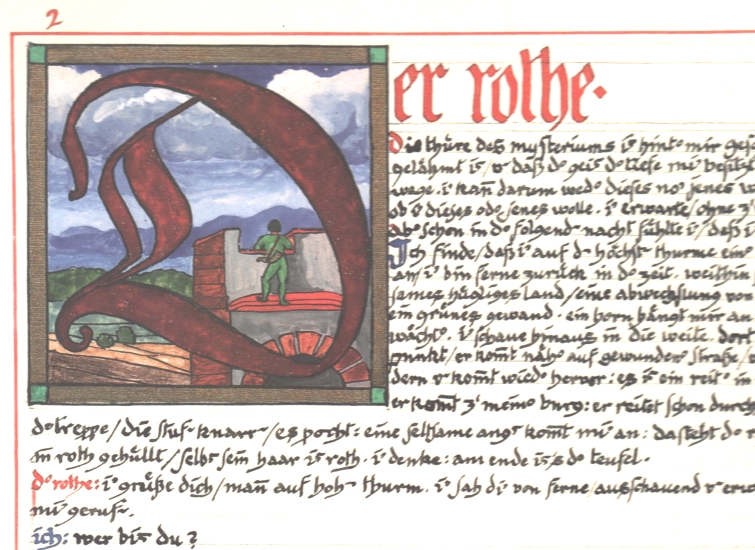 2
Der rothe.
die thüre des mysteriums iſt hintᵒ mir
gelähmt iſt / v daß dᵒ geiſt dᵒ tiefe mi
wege. i kañ darum wedᵒ dieſes noᵗ jenes
ob i dieſes odᵒ jenes wolle. i erwarte / ohne zˢ
abᵒ ſchon in dᵒ folgend⁻ nacht fühlte i / daß i
Ich finde / daß i auf d⁻ höchſt⁻ thurme
an / i bin ferne zurück in dᵒ zeit. weithin
ſames hügliges land / eine abwechſlung von
ein grünes gewand. ein horn hängt mir an
wächtᵒ. i ſchaue hinaus in die weite. dort
punkt / er kom̄t nähᵒ auf gewunden⁻ ſtraße /
dern v kom̄t wiedᵒ hervor: es iſt ein reitᵒ in
er kom̄t zˢ meinᵒ burg: er reitet ſchon durch
dᵒ treppe / die ſtuf⁻ knarr⁻ / es pocht: eine ſeltſame angſt kom̄t mi an: da ſteht dᵒ
in roth gehüllt / ſelbſt ſein haar iſt roth. i denke: am ende iſt's dᵒ teufel.
dᵒ rothe: i grüße dich / mañ auf hoh⁻ thurm. i ſah di von ferne / ausſchauend v
mi geruf⁻.
ich: wer biſt du?